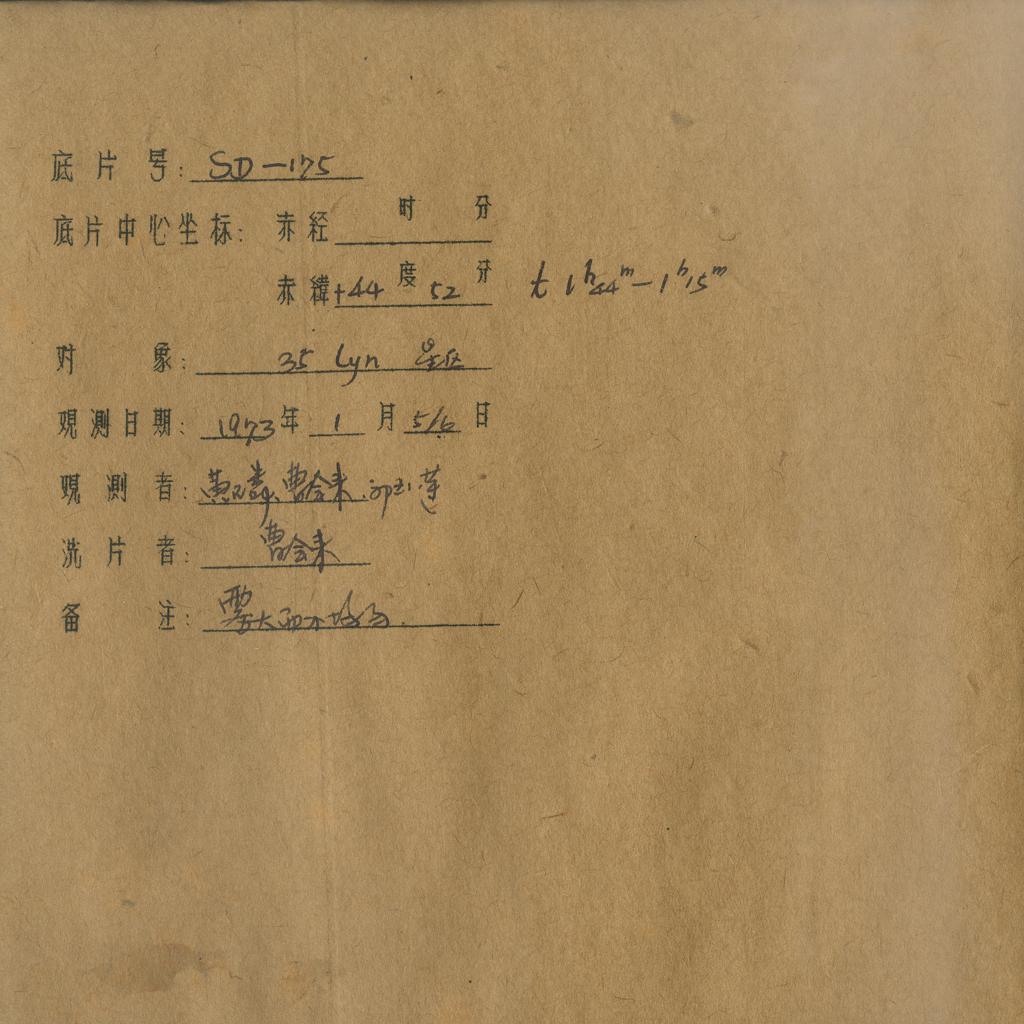 底片号: SD-175
底片中心坐标: 赤经 时 分
赤緯 +44 度 52 分 t 1h44m-1h15m
对象: 35 Lyn 星区
观测日期: 1973年 1月 5/6日
观测者: 黄 磷、曹会来.
洗片者: 曹会来
备注: 雾大